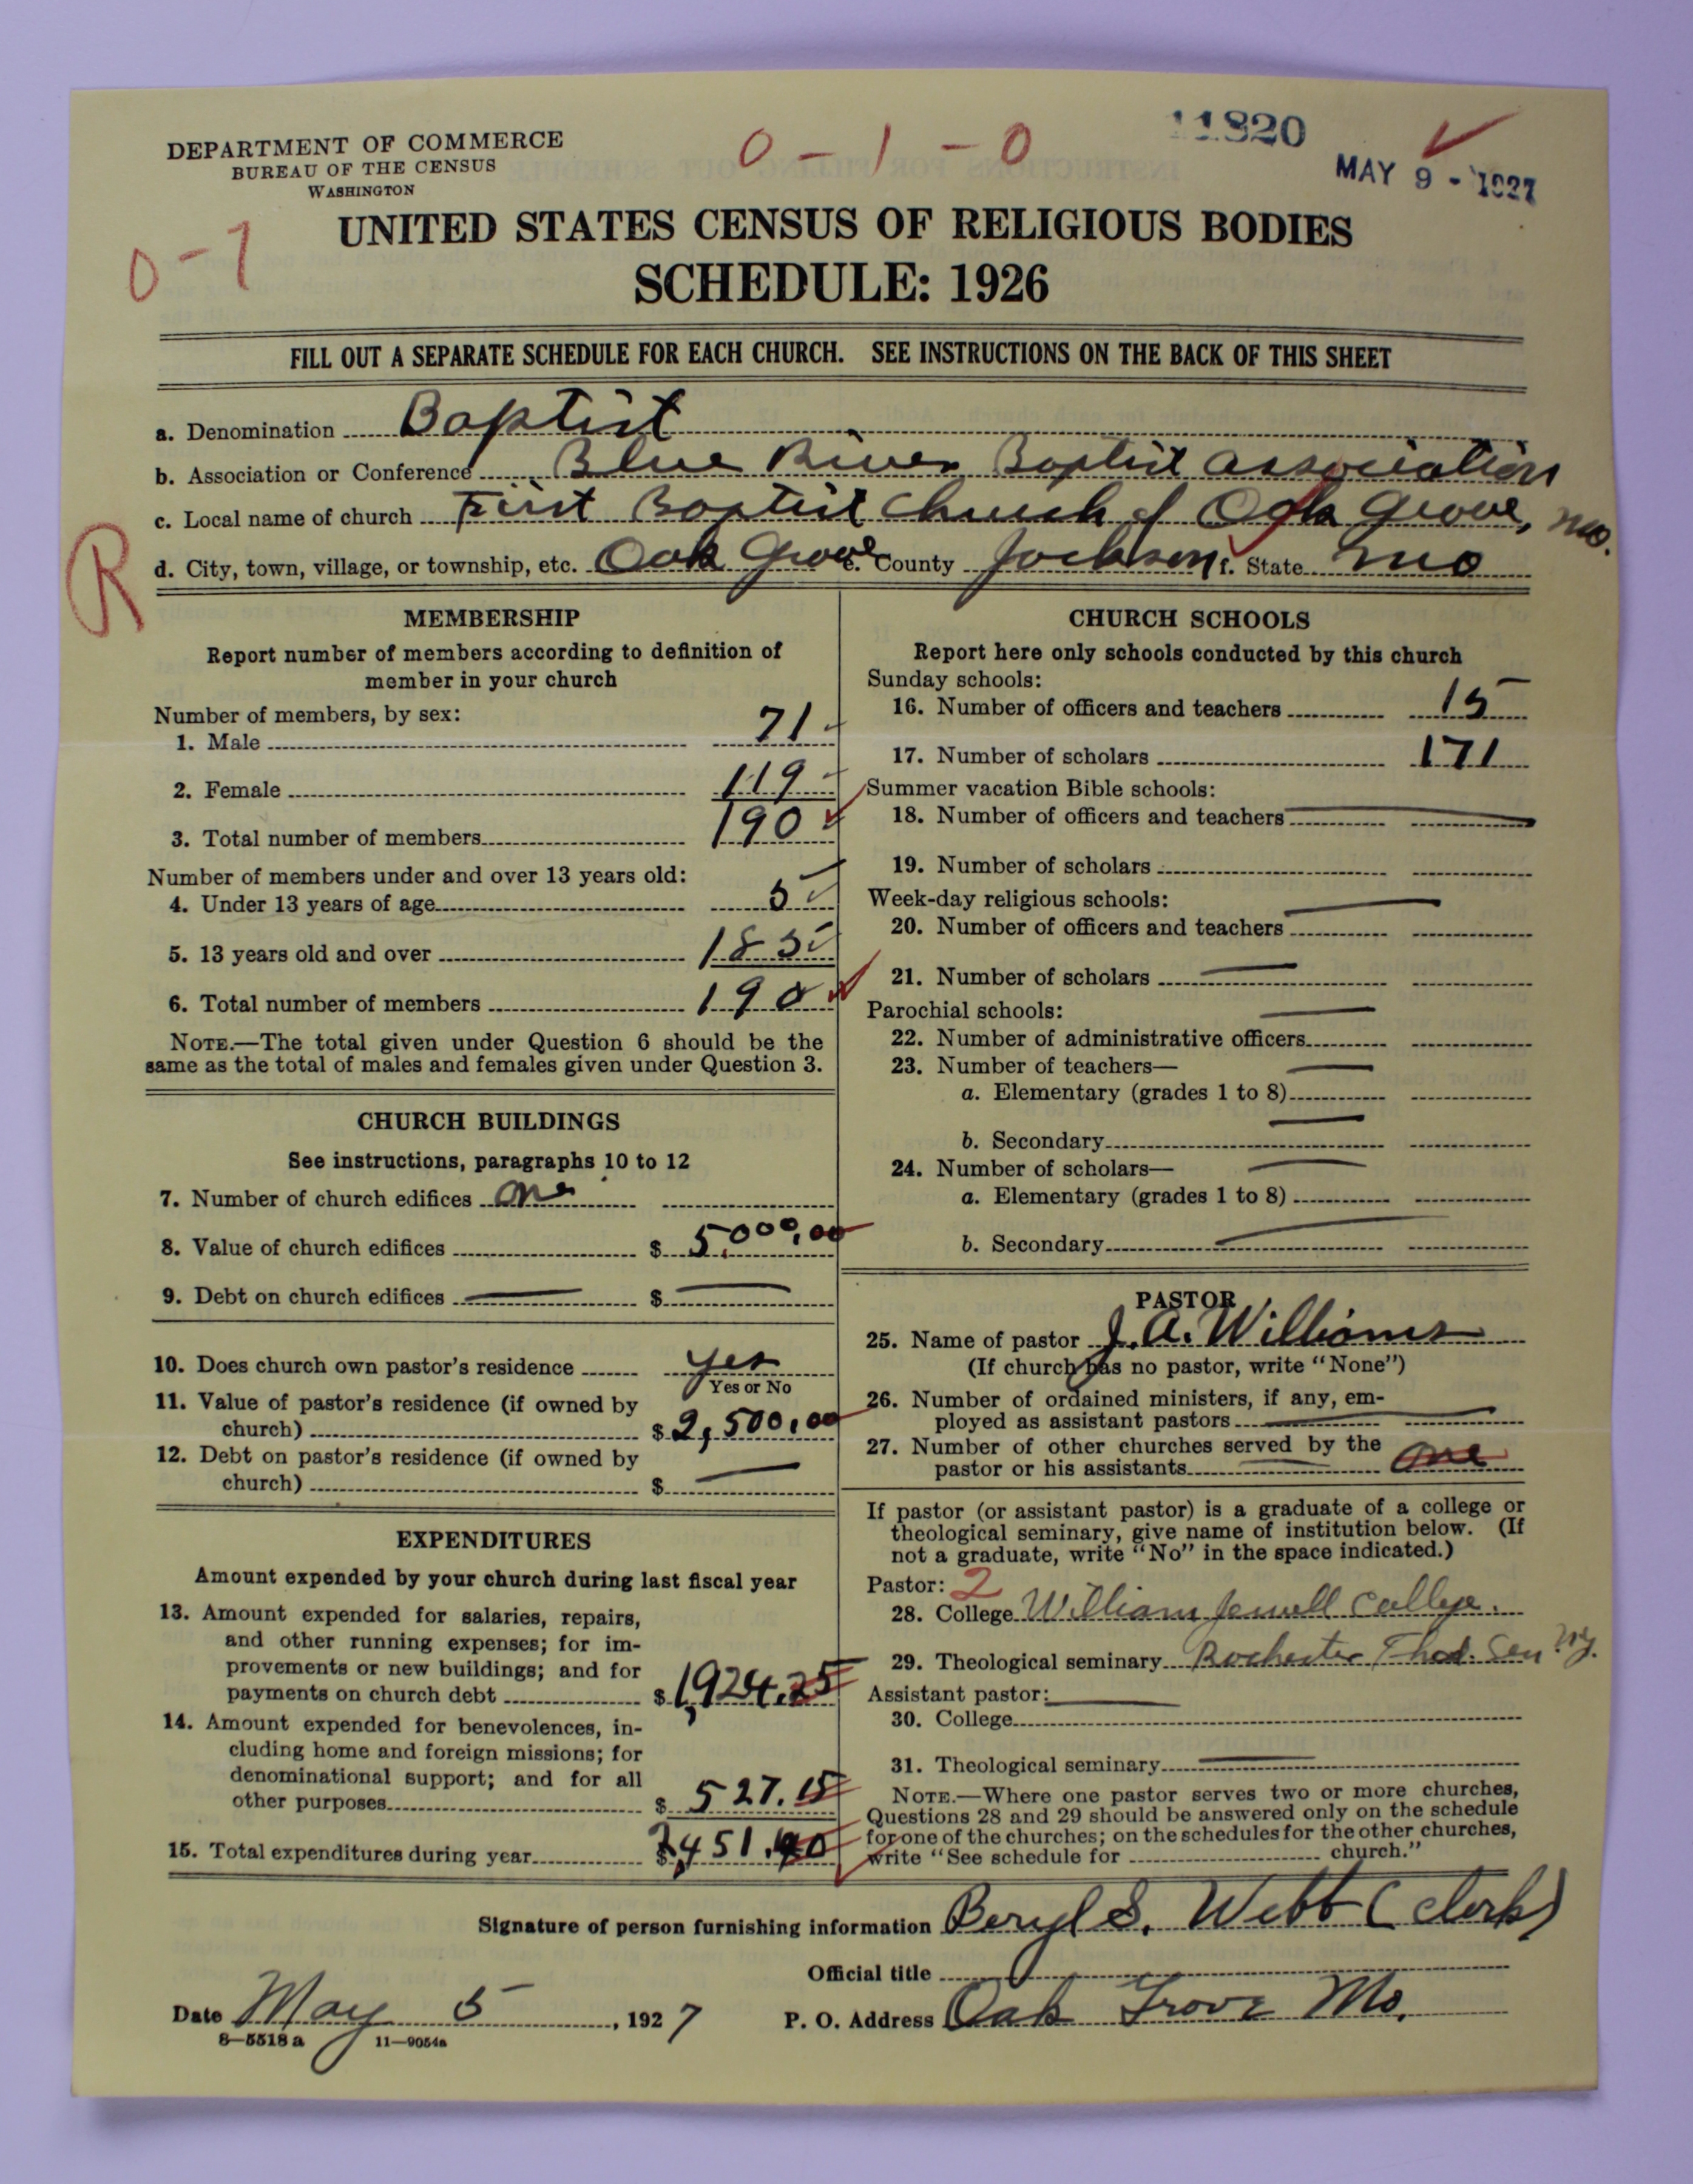 DEPARTMENT OF COMMERCE
BUREAU OF THE CENSUS
WASHINGTON
0 - 1 - 0
11820
MAY 9 - 1927
0-7
UNITED STATES CENSUS OF RELIGIOUS BODIES
SCHEDULE: 1926
FILL OUT A SEPARATE SCHEDULE FOR EACH CHURCH. SEE INSTRUCTIONS ON THE BACK OF THIS SHEET
a. Denomination Baptist
b. Association or Conference Blue River Baptist Association
c. Local name of church First Baptist Church of Oak Grove, Mo.
R
d. City, town, village, or township, etc. Oak Grove e. County Jackson f. State Mo
MEMBERSHIP
Report number of members according to definition of
member in your church
Number of members, by sex:
1. Male 71
2. Female 119
3. Total number of members 190
Number of members under and over 13 years old:
4. Under 13 years of age 5
5. 13 years old and over 185
6. Total number of members 190
NOTE.—The total given under Question 6 should be the
same as the total of males and females given under Question 3.
CHURCH BUILDINGS
See instructions, paragraphs 10 to 12
7. Number of church edifices one
8. Value of church edifices $ 5,000.00
9. Debt on church edifices — $ —
10. Does church own pastor's residence yes
Yes or No
11. Value of pastor's residence (if owned by
church) $ 2,500.00
12. Debt on pastor's residence (if owned by
church) $ —
EXPENDITURES
Amount expended by your church during last fiscal year
13. Amount expended for salaries, repairs,
and other running expenses; for im-
provements or new buildings; and for
payments on church debt $ 1,924.25
14. Amount expended for benevolences, in-
cluding home and foreign missions; for
denominational support; and for all
other purposes $ 527.15
15. Total expenditures during year $ 2,451.40
CHURCH SCHOOLS
Report here only schools conducted by this church
Sunday schools:
16. Number of officers and teachers 15
17. Number of scholars 171
Summer vacation Bible schools:
18. Number of officers and teachers —
19. Number of scholars
Week-day religious schools:
20. Number of officers and teachers —
21. Number of scholars —
Parochial schools:
22. Number of administrative officers —
23. Number of teachers—
a. Elementary (grades 1 to 8) —
b. Secondary —
24. Number of scholars—
a. Elementary (grades 1 to 8) —
b. Secondary —
PASTOR
25. Name of pastor J. A. Williams
(If church has no pastor, write "None")
26. Number of ordained ministers, if any, em-
ployed as assistant pastors —
27. Number of other churches served by the
pastor or his assistants — one
If pastor (or assistant pastor) is a graduate of a college or
theological seminary, give name of institution below. (If
not a graduate, write "No" in the space indicated.)
Pastor: 2
28. College William Jewell College.
29. Theological seminary Rochester Theol. Sem N.Y.
Assistant pastor: —
30. College
31. Theological seminary —
NOTE.—Where one pastor serves two or more churches,
Questions 28 and 29 should be answered only on the schedule
for one of the churches; on the schedules for the other churches,
write "See schedule for church."
Signature of person furnishing information Beryl S. Webb (Clerk)
Official title
Date May 5, 1927 P. O. Address Oak Grove Mo.
8—5518 a 11—9054a